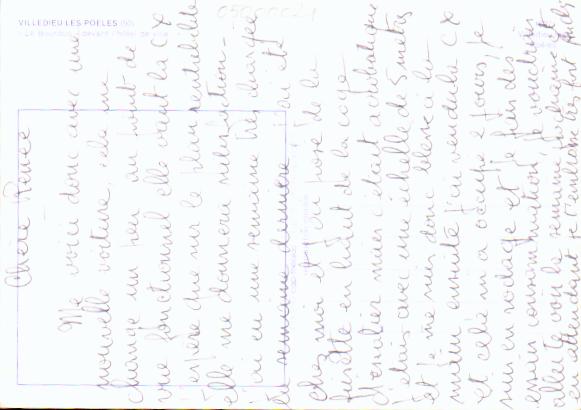 VILLEDIEU LES POELES (50)
Le Bourdon devant l'hôtel de ville
Chère Renée
Me voici donc avec une
nouvelle voiture, cela me
change un peu au point de
vue fonctionnel elle vaut la CX
j'espère que sur le plan rentabilité
elle me donnera satisfaction
j'ai eu une semaine très chargée
la semaine dernière j'ai été
chez moi et j'ai posé de la
frisette en haut de la cage
d'escalier mais c'était acrobatique
j'étais avec une échelle de 5 mètres
et je me suis donc blessé à la
main ensuite j'ai vendu la CX
et cela m'a occupé 2 jours, je
suis en rodage et je fais des
essais consommation, je voudrais
aller te voir la semaine prochaine
en attendant je t'embrasse très fort